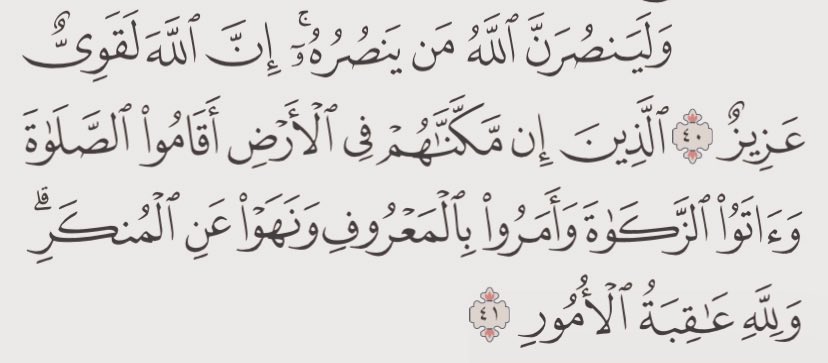 وَلَيَنصُرَنَّ ٱللَّهُ مَن يَنصُرُهُۥٓۚ إِنَّ ٱللَّهَ لَقَوِىٌّ
عَزِيزٌ ٤٠ ٱلَّذِينَ إِن مَّكَّنَّٰهُمْ فِى ٱلْأَرْضِ أَقَامُوا۟ ٱلصَّلَوٰةَ
وَءَاتَوُا۟ ٱلزَّكَوٰةَ وَأَمَرُوا۟ بِٱلْمَعْرُوفِ وَنَهَوْا۟ عَنِ ٱلْمُنكَرِۗ
وَلِلَّهِ عَٰقِبَةُ ٱلْأُمُورِ ٤١